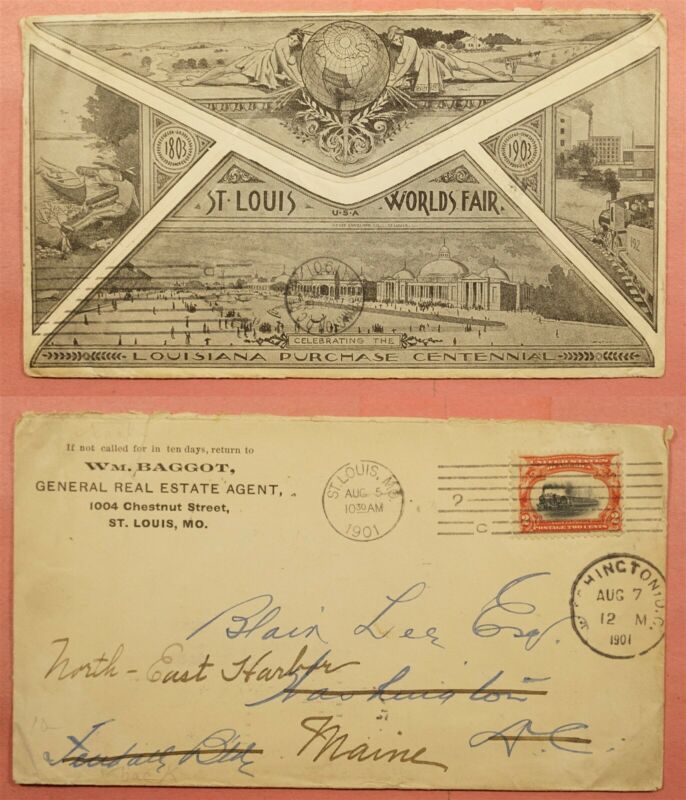 1803
1903
ST. LOUIS
U·S·A
WORLDS FAIR
192
CELEBRATING THE
LOUISIANA PURCHASE CENTENNIAL
If not called for in ten days, return to
WM. BAGGOT,
GENERAL REAL ESTATE AGENT,
1004 Chestnut Street,
ST. LOUIS, MO.
ST. LOUIS, MO.
AUG 5
1030 AM
1901
?
C
UNITED STATES
OF AMERICA
2 POSTAGE TWO CENTS 2
WASHINGTON, D.C.
AUG 7
12 M
1901
Blair Lee Esq.
North-East Harbor
Washington
Maine
D.C.
Bldg